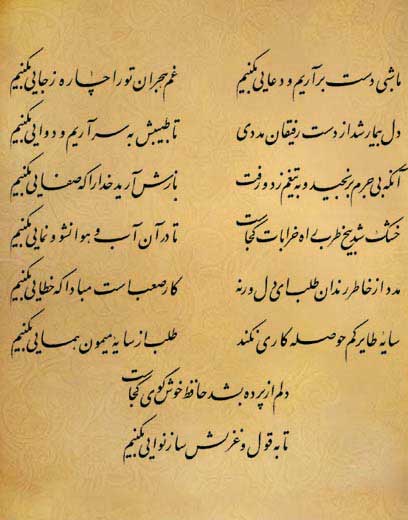 ما شبی دست برآریم و دعایی بکنیم غم هجران تو را چاره ز جایی بکنیم
دل بیمار شد از دست رفیقان مددی تا طبیبش به سر آریم و دوایی بکنیم
آنکه بی جرم برنجید و به تیغم زد و رفت بازش آرید خدا را که صفایی بکنیم
خشک شد بیخ طرب راه خرابات کجاست تا در آن آب و هوا نشو و نمایی بکنیم
مدد از خاطر رندان طلب ای دل ورنه کار صعب است مبادا که خطایی بکنیم
سایهٔ طایر کم حوصله کاری نکند طلب از سایهٔ میمون همایی بکنیم
دلم از پرده بشد حافظ خوش گوی کجاست
تا به قول و غزلش ساز نوایی بکنیم